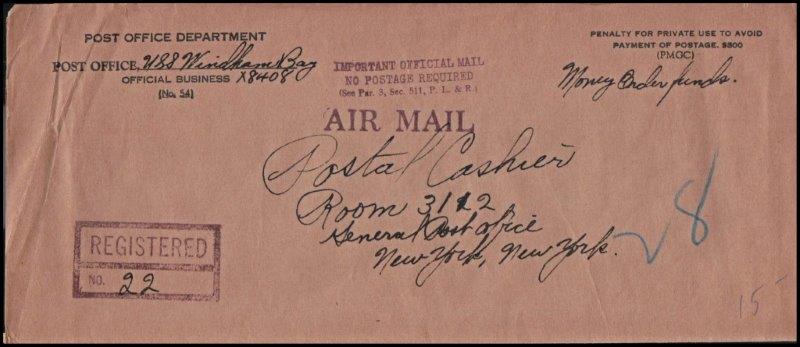 POST OFFICE DEPARTMENT
POST OFFICE, USS Windham Bay
OFFICIAL BUSINESS X8408
(No. 54)
IMPORTANT OFFICIAL MAIL
NO POSTAGE REQUIRED
(See Par. 3, Sec. 511, P. L. & R.)
AIR MAIL
PENALTY FOR PRIVATE USE TO AVOID
PAYMENT OF POSTAGE, $300
(PMGC)
Money Order funds.
Postal Cashier
Room 3112
General Post Office
New York, New York.
28
REGISTERED
NO. 22
15